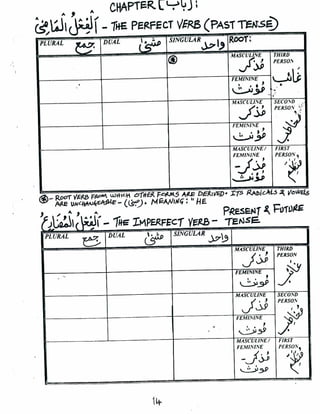 CHAPTER [باب]:
اَلْفِعْلُ الْمَاضِيْ - THE PERFECT VERB (PAST TENSE)
PLURAL جمع DUAL مثنى SINGULAR واحد ROOT:
MASCULINE مُذَكَّر THIRD PERSON غائب
FEMININE مُؤنث
MASCULINE مُذَكَّر SECOND PERSON مخاطب
FEMININE مُؤنث
MASCULINE / FEMININE مُذَكَّر - مُؤنث FIRST PERSON متكلم
⊛ - ROOT VERB FROM WHICH OTHER FORMS ARE DERIVED. ITS RADICALS & VOWELS
ARE UNCHANGEABLE - (مبني). MEANING: "HE
اَلْفِعْلُ الْمُضَارِعُ - THE IMPERFECT VERB - PRESENT & FUTURE TENSE
PLURAL جمع DUAL مثنى SINGULAR واحد
MASCULINE مُذَكَّر THIRD PERSON غائب
FEMININE مُؤنث
MASCULINE مُذَكَّر SECOND PERSON مخاطب
FEMININE مُؤنث
MASCULINE / FEMININE مُذَكَّر - مُؤنث FIRST PERSON متكلم
14